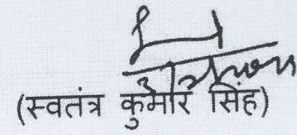 (स्वतंत्र कुमार सिंह)